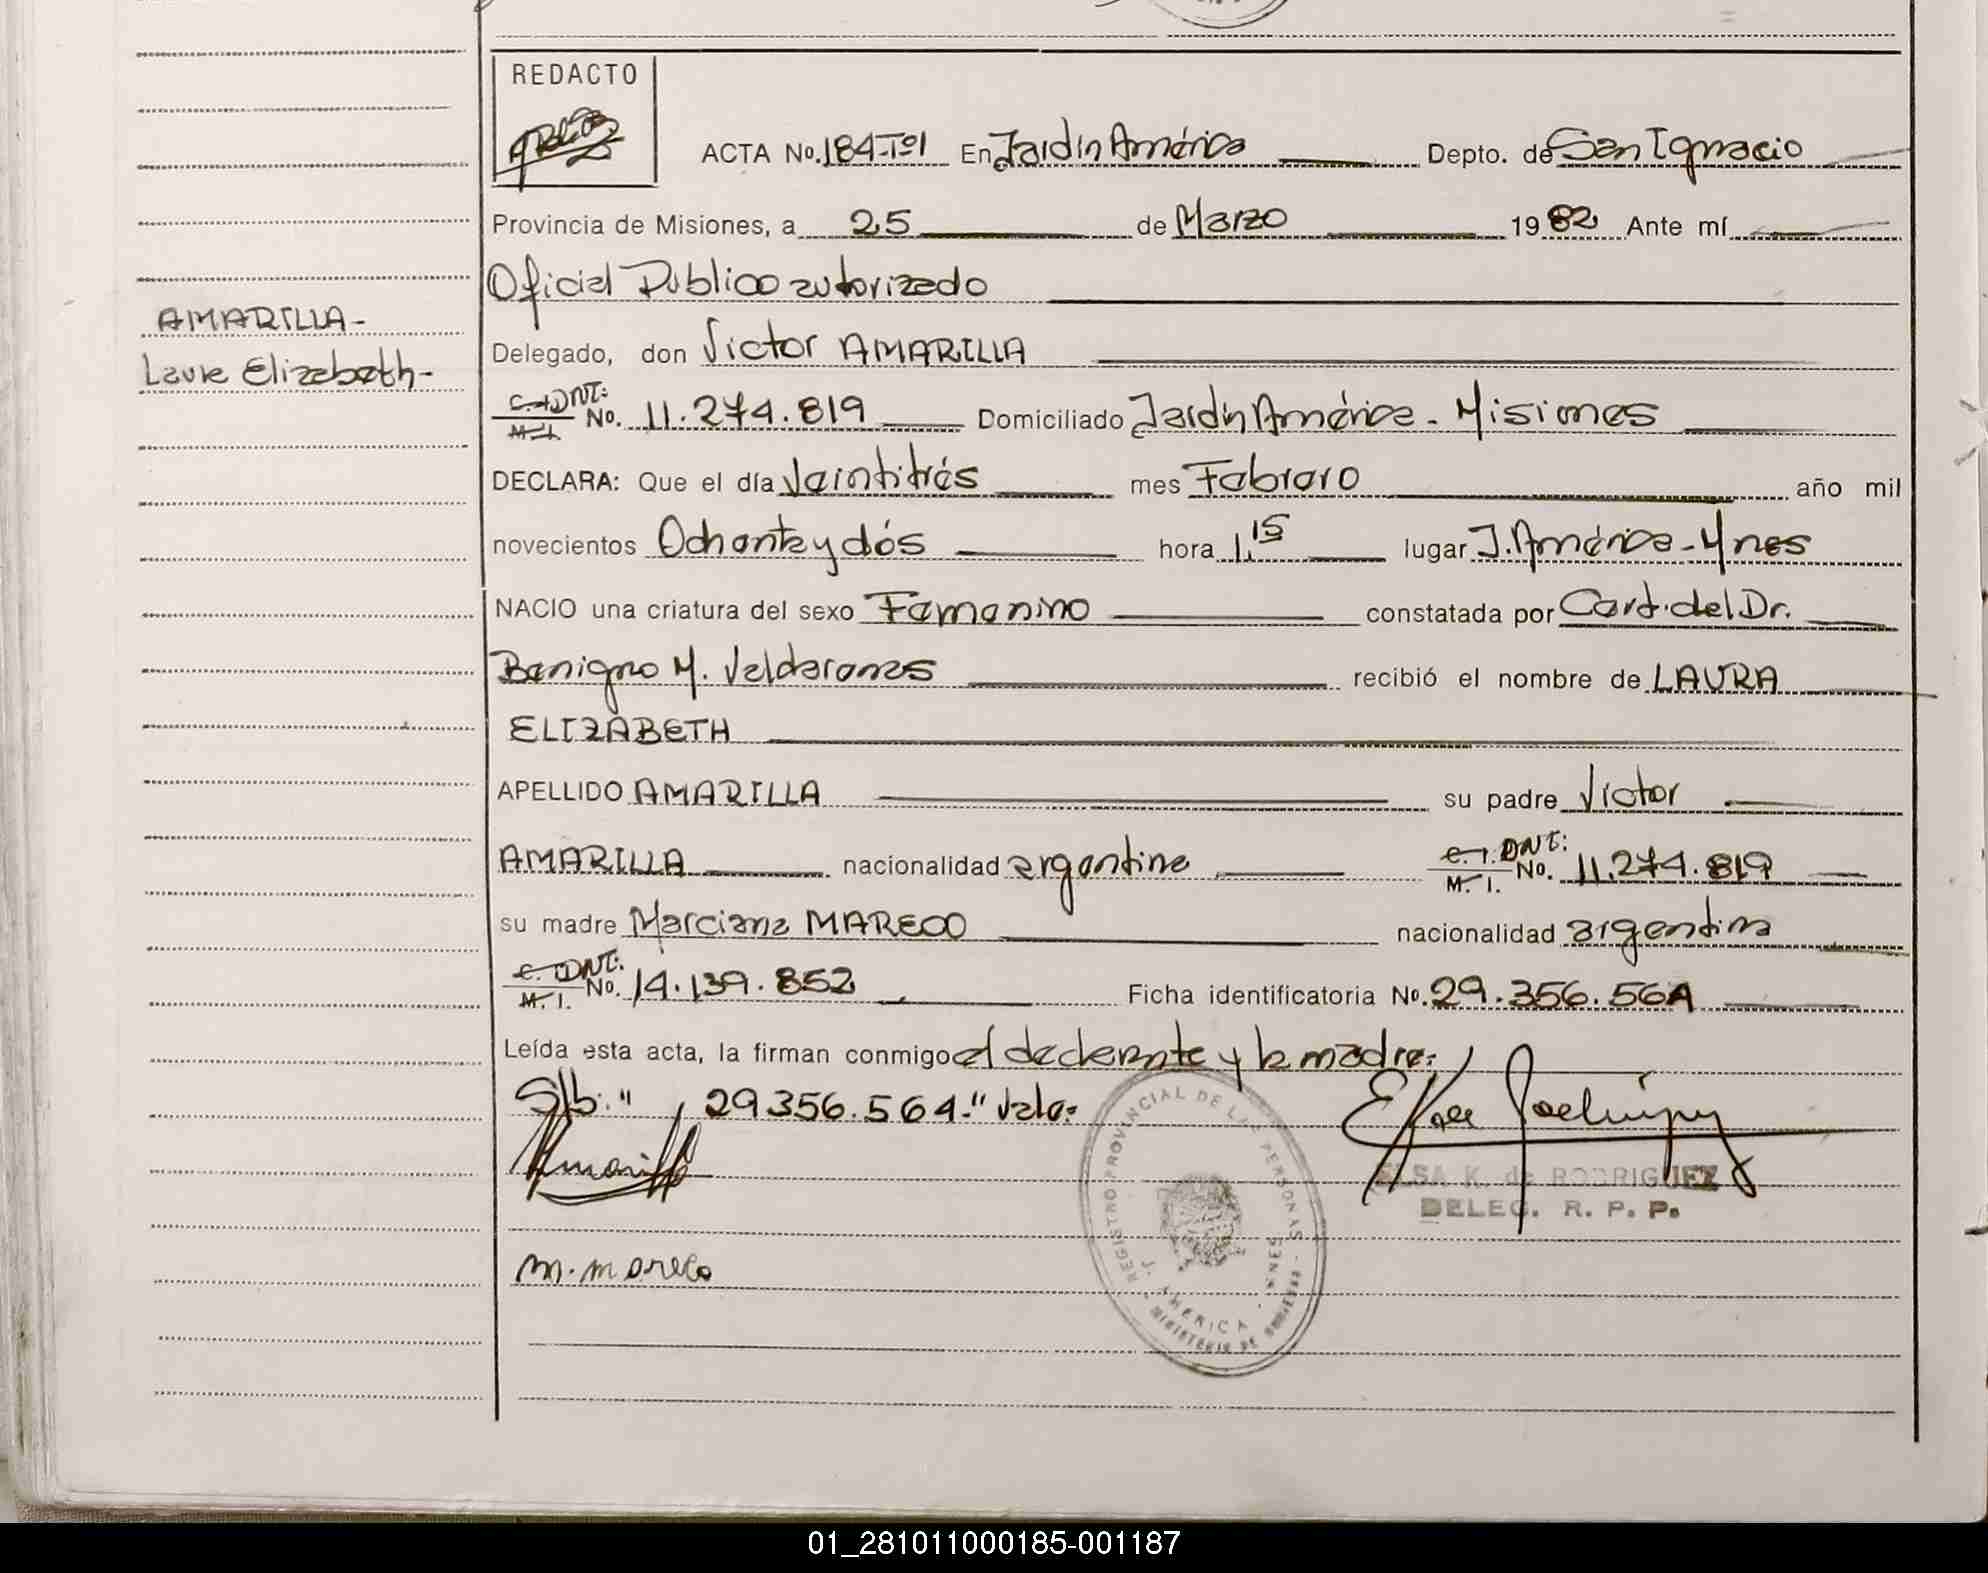 REDACTO
ACTA No. 184-Tº1 En Jardín América Depto. de San Ignacio
Provincia de Misiones, a 25 de Marzo 1982 Ante mí
Oficial Público autorizado
AMARILLA-
Delegado, don Victor AMARILLA
Laura Elizabeth-
C.I. DNI: M.I. No. 11.274.819 Domiciliado Jardín América - Misiones
DECLARA: Que el día Veintitrés mes Febrero año mil
novecientos Ochenta y dós hora 1.15 lugar J. América - Mnes
NACIO una criatura del sexo Femenino constatada por Cert. del Dr.
Benigno M. Valdarenas recibió el nombre de LAURA
ELIZABETH
APELLIDO AMARILLA su padre Victor
AMARILLA nacionalidad argentina C.I. DNI: M.I. No. 11.274.819
su madre Marciana MARECO nacionalidad argentina
C.I. DNI: M.I. No. 14.139.852 Ficha identificatoria No. 29.356.564
Leída esta acta, la firman conmigo el declarante y la madre:
S/b: " 29356.564." Vale:
Amarilla
ELSA K. de RODRIGUEZ
DELEG. R. P. P.
M. Mareco
REGISTRO PROVINCIAL DE LAS PERSONAS - MNES.
J. AMERICA
MINISTERIO DE GOBIERNO
01_281011000185-001187